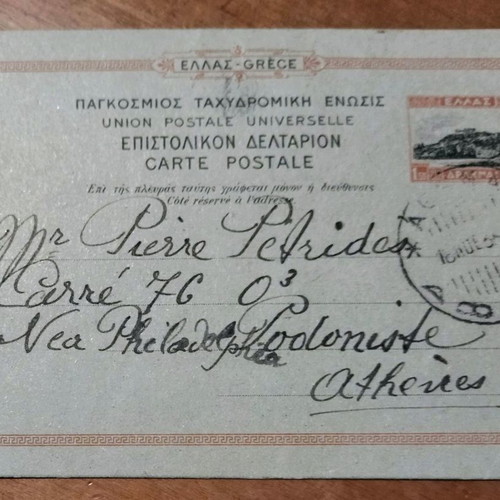 ΕΛΛΑΣ-GRÈCE
ΠΑΓΚΟΣΜΙΟΣ ΤΑΧΥΔΡΟΜΙΚΗ ΕΝΩΣΙΣ
UNION POSTALE UNIVERSELLE
ΕΠΙΣΤΟΛΙΚΟΝ ΔΕΛΤΑΡΙΟΝ
CARTE POSTALE
Ἐπὶ τῆς πλευρᾶς ταύτης γράφεται μόνον ἡ διεύθυνσις
Côté réservé à l'adresse
ΕΛΛΑΣ
Mr Pierre Petrides
Carré 76 O3
Nea Philadelphia Podoniste
Athènes